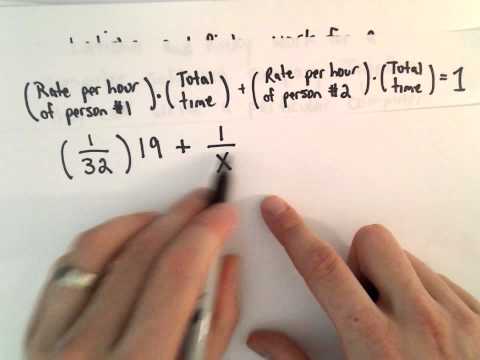 (Rate per hour of person #1) · (Total time) + (Rate per hour of person #2) · (Total time) = 1
(1/32) 19 + 1/X